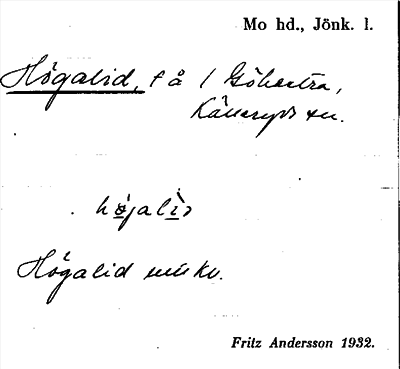 Mo hd., Jönk. l.
Högalid, f å / Göhestra,
Källeryds sn.
högalìd
Högalid mikv.
Fritz Andersson 1932.